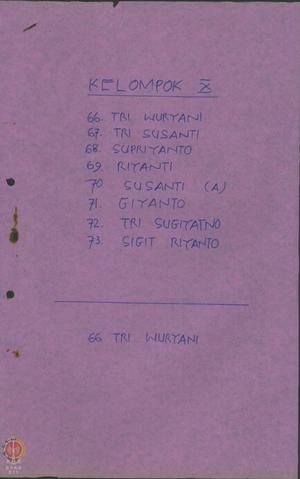 KELOMPOK X
66. TRI WURYANI
67. TRI SUSANTI
68. SUPRIYANTO
69. RIYANTI
70. SUSANTI (A)
71. GIYANTO
72. TRI SUGIYATNO
73. SIGIT RIYANTO
66 TRI WURYANI